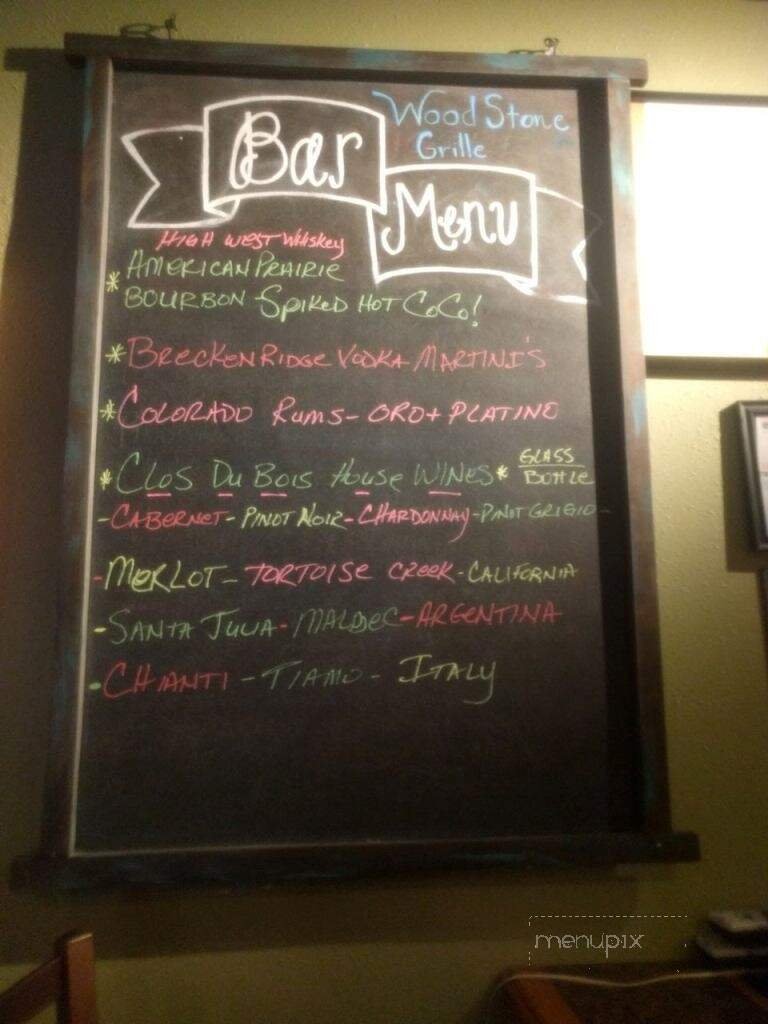 Wood Stone
Grille
Bar
Menu
HIGH WEST Whiskey
* AMERICAN PRAIRIE
BOURBON - SPIKED HOT COCO!
* BRECKENRIDGE VODKA MARTINI'S
* COLORADO RUMS - ORO + PLATINO
* CLOS DU BOIS HOUSE WINES * GLASS
BOTTLE
- CABERNET - PINOT NOIR - CHARDONNAY - PINOT GRIGIO -
- MERLOT - TORTOISE CREEK - CALIFORNIA
- SANTA JULIA - MALBEC - ARGENTINA
- CHIANTI - TIAMO - ITALY
menupix